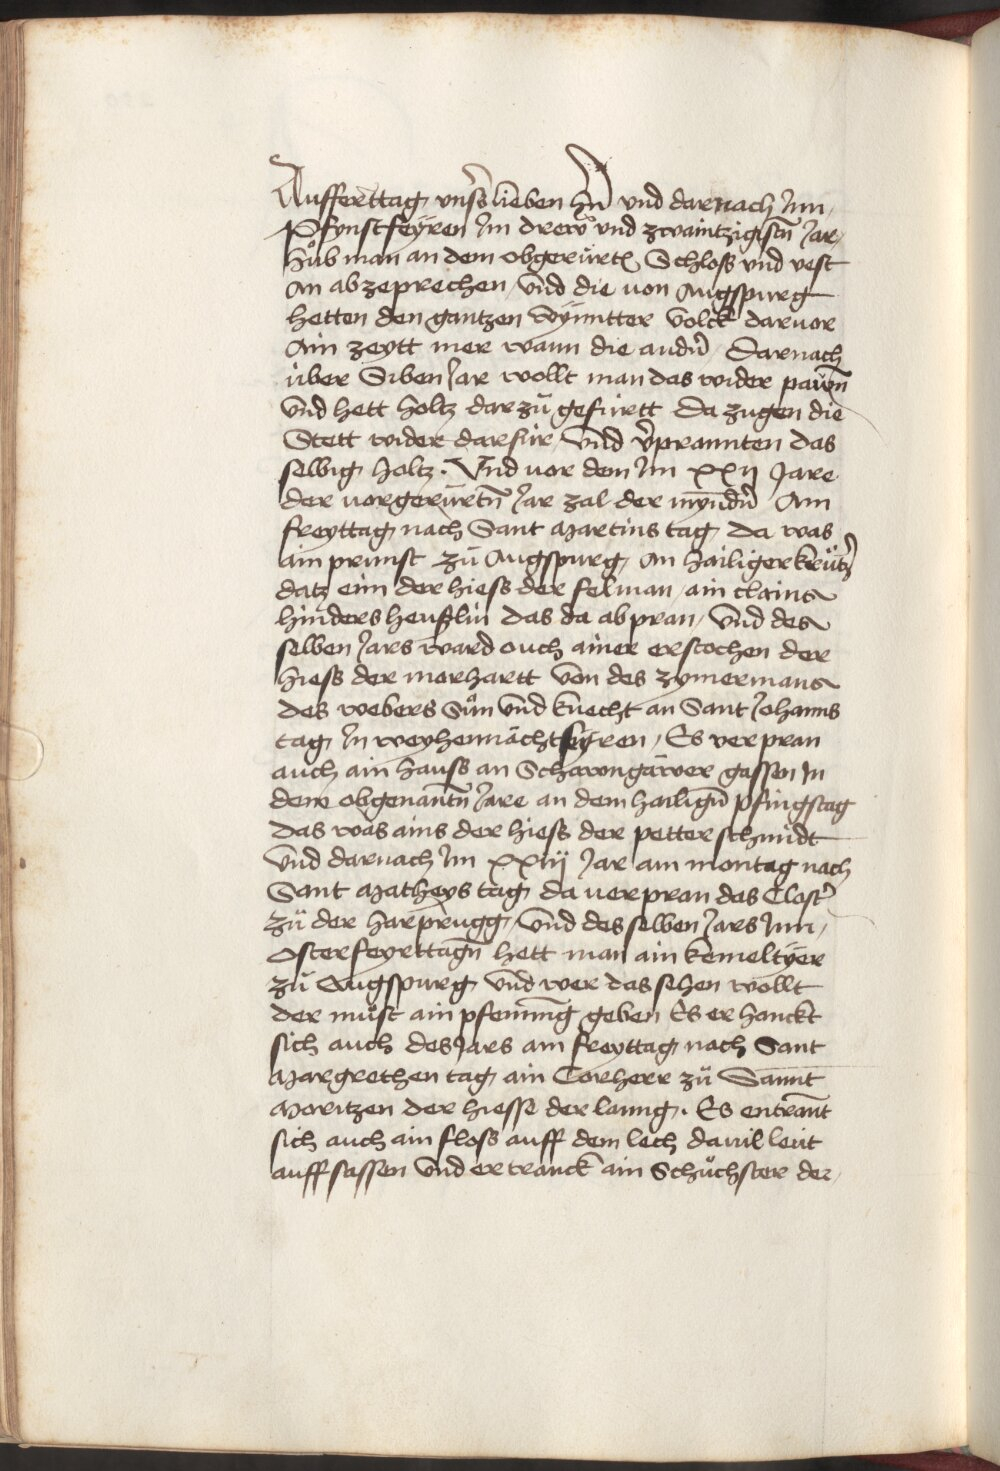 Aufferttag vnsers lieben hn̄ vnd darnach Jm
Pfynstfeyren Jm drew vnd zwaintzigistn̄ Jar
Hůb man an dem obgerürtt Schloss vnd vest
An abzeprechen vnd die von Augspurg
hetten den gantzen wynntter volck daruor
Ain zeytt mer wann die andn̄ Darnach
über Siben Jar wollt man das wider pawn̄
vnd hett holtz darzů gefürtt Da zugen die
Stett wider darfür vnd v̄prannten das
selbig holtz. Vnd vor dem Jm xxij Jare
der vorgerürtn̄ Jar zal der myndn̄ Am
freyttag nach Sant Martins tag da was
ain prunst zů Augspurg An hailigerkrütz
datz eim der hiess der felman ain clains
hinders heuslin das da ab pran vnd des
selben Jars ward ouch ainer erstochen der
hiess der morhartt von des zymermans
des webers Sůn vnd knecht an Sant Johanns
tag Jn weyhennächtfeyren Es ver pran
auch ain hauss an Schawngärwer gassen Jn
dem obgenantn̄ Jare an dem hailign̄ pfingstag
das was ains der hiess der petter schmidt
vnd darnach Jm xxiij Jar am montag nach
Sant Matheys tag da verpran das Closter
zů der Harprugg vnd des selben Jars Jnn
Osterfeyrttagn̄ hett man ain kemeltyer
zů Augspurg vnd wer das sehen wollt
der můst ain pfenning geben Es er hanckt
sich auch des Jars am freyttag nach Sant
Margrethen tag ain Corherr zů Sannt
Moritzen der hiesse der lanng. Es entrant
sich auch ain floss auff dem lech da vil leüt
auff sassen vnd er tranck ain Schůchster der